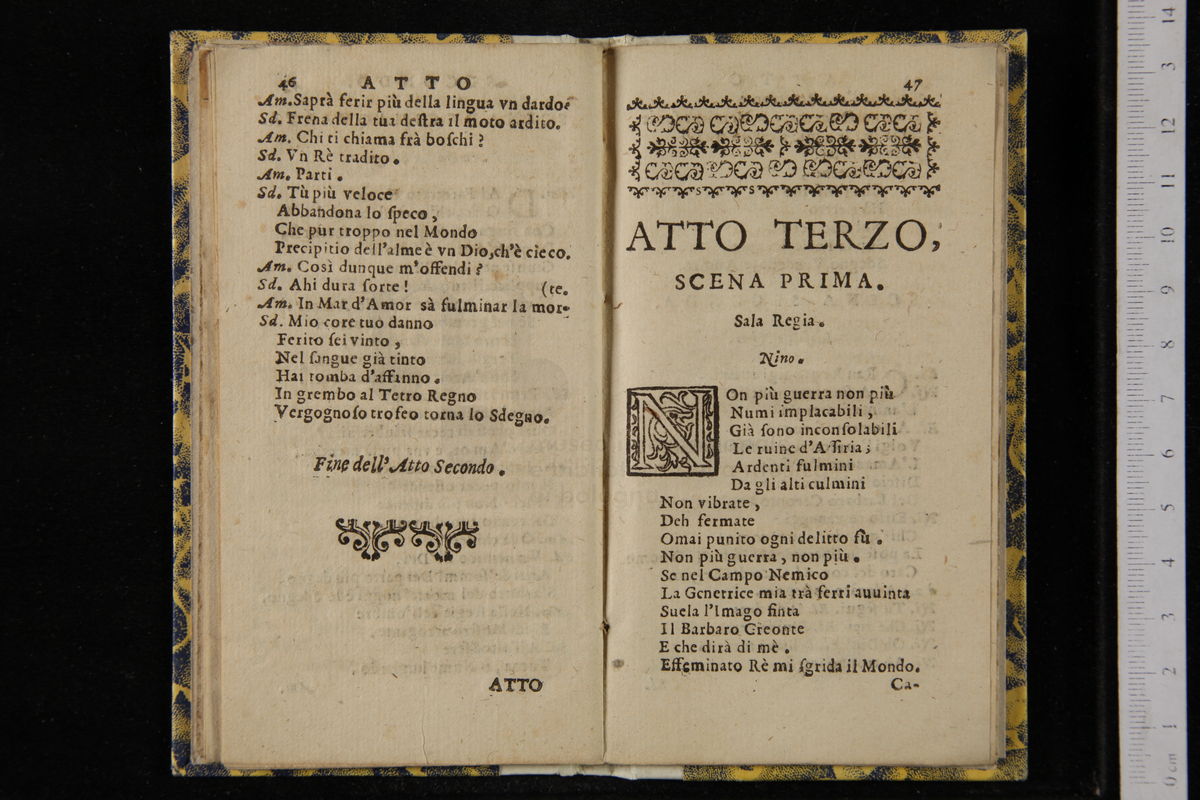 46 ATTO
Am. Saprà ferir più della lingua vn dardo.
Sd. Frena della tua deſtra il moto ardito.
Am. Chi ti chiama frà boſchi ?
Sd. Vn Rè tradito .
Am. Parti .
Sd. Tù più veloce
Abbandona lo ſpeco ,
Che pur troppo nel Mondo
Precipitio dell'alme è vn Dio,ch'è cieco.
Am. Così dunque m'offendi ?
Sd. Ahi dura ſorte ! (te.
Am. In Mar d'Amor sà fulminar la mor-
Sd. Mio core tuo danno
Ferito ſei vinto ,
Nel ſangue già tinto
Hai tomba d'affanno .
In grembo al Tetro Regno
Vergognoſo trofeo torna lo Sdegno.
Fine dell'Atto Secondo .
ATTO
47
ATTO TERZO,
SCENA PRIMA.
Sala Regia .
Nino .
NOn più guerra non più
Numi implacabili ,
Già ſono inconſolabili
Le ruine d'Aſſiria ;
Ardenti fulmini
Da gli alti culmini
Non vibrate ,
Deh fermate
Omai punito ogni delitto fù .
Non più guerra , non più .
Se nel Campo Nemico
La Genetrice mia trà ferri auuinta
Suela l'Imago finta
Il Barbaro Creonte
E che dirà di mè .
Effeminato Rè mi ſgrida il Mondo.
Ca-
14
3
12
11
10
9
8
7
6
5
4
3
2
1
0 cm